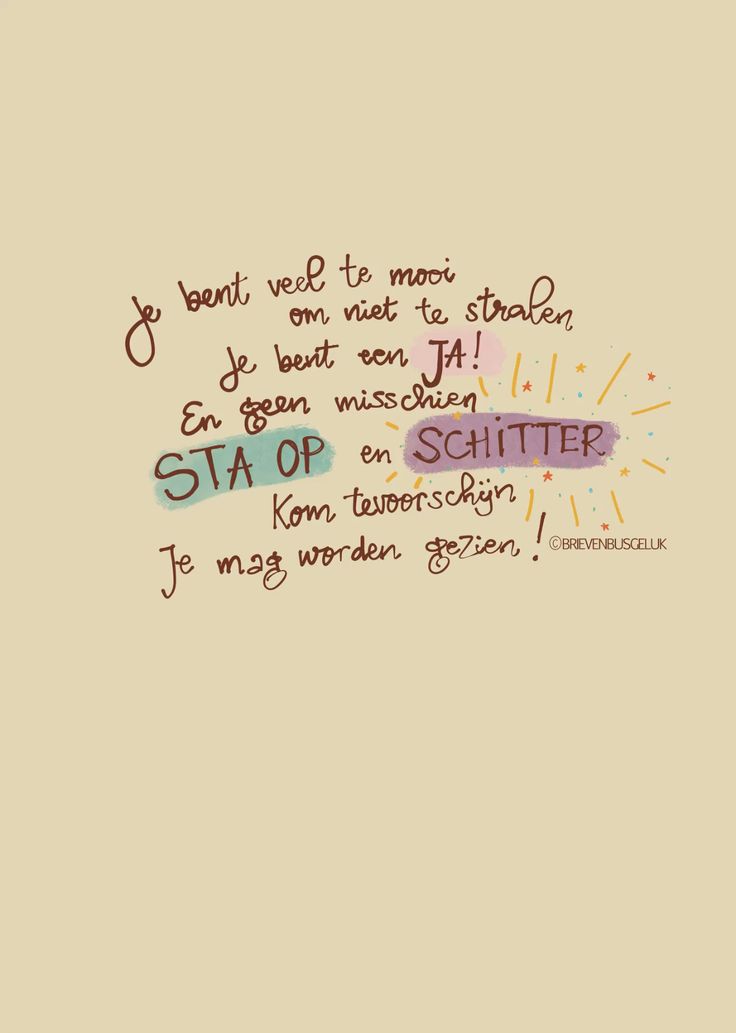 Je bent veel te mooi
om niet te stralen
Je bent een JA!
En geen misschien
STA OP en SCHITTER
Kom tevoorschijn
Je mag worden gezien!
©BRIEVENBUSGELUK